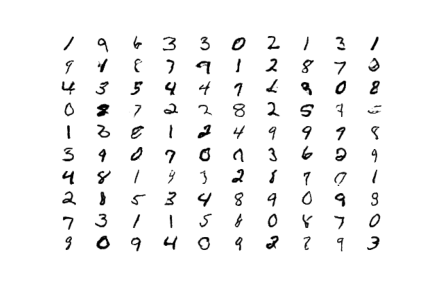 1 9 6 3 3 0 2 1 3 1
9 1 8 7 9 1 2 8 7 2
4 3 5 4 4 7 2 9 0 8
0 2 7 2 2 8 2 5 7
1 3 8 1 2 4 9 9 9 8
3 9 0 7 0 7 3 6 2 9
4 8 1 9 3 2 8 7 0 1
2 8 5 3 4 8 9 0 9 9
7 3 1 1 5 8 0 8 7 0
9 0 9 4 0 9 2 9 3